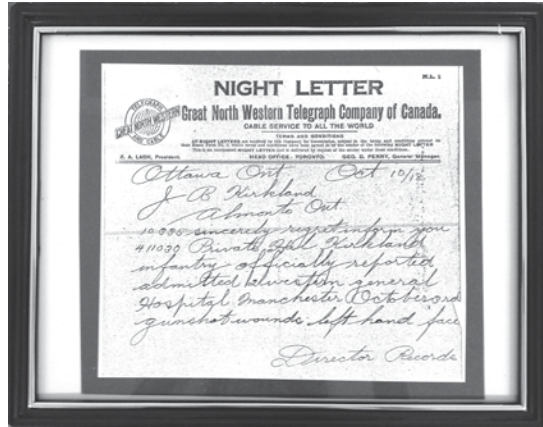 M.L. 1
NIGHT LETTER
TELEGRAPH
GREAT NORTH WESTERN
AND CABLE
Great North Western Telegraph Company of Canada.
CABLE SERVICE TO ALL THE WORLD
TERMS AND CONDITIONS
F. A. LASH, President. HEAD OFFICE - TORONTO. GEO. D. PERRY, General Manager.
Ottawa Ont Oct 10/18
J B Kirkland
Almonte Ont
sincerely regret inform you
411030 Private Kirkland
infantry officially reported
admitted western general
Hospital Manchester October 3rd
gunshot wounds left hand face
Director Records